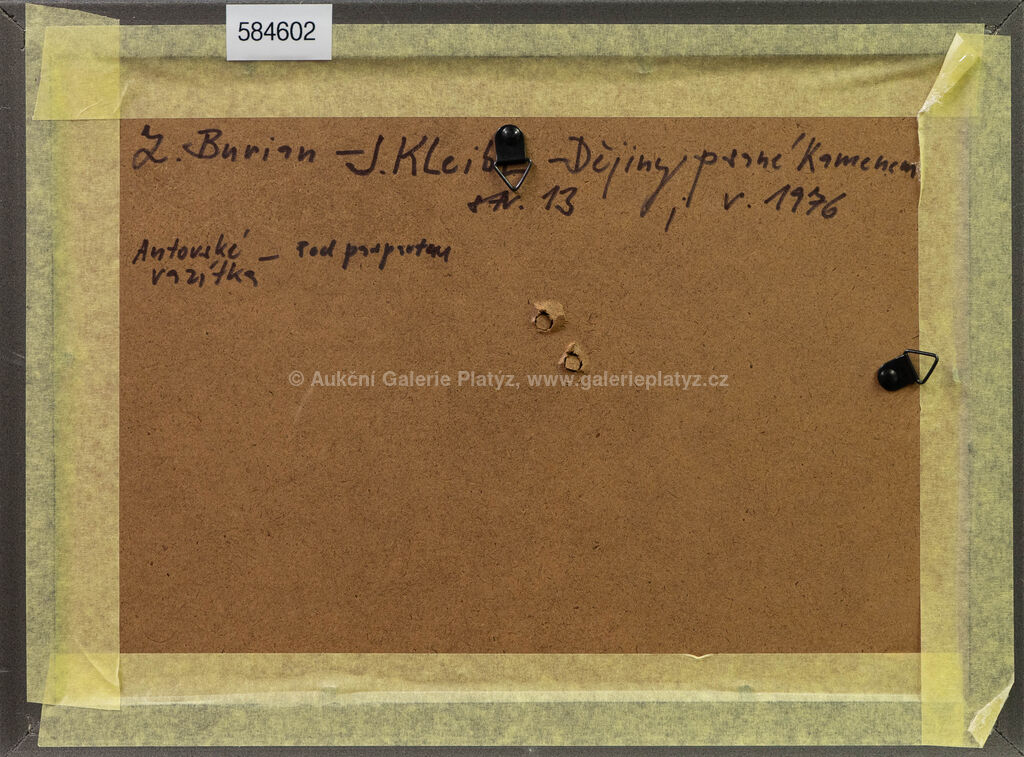 584602
Z. Burian – J. Kleibl – Dějiny psané Kamenem
str. 13, v. 1976
Autorské – Pod paspartou
razítka
© Aukční Galerie Platýz, www.galerieplatyz.cz